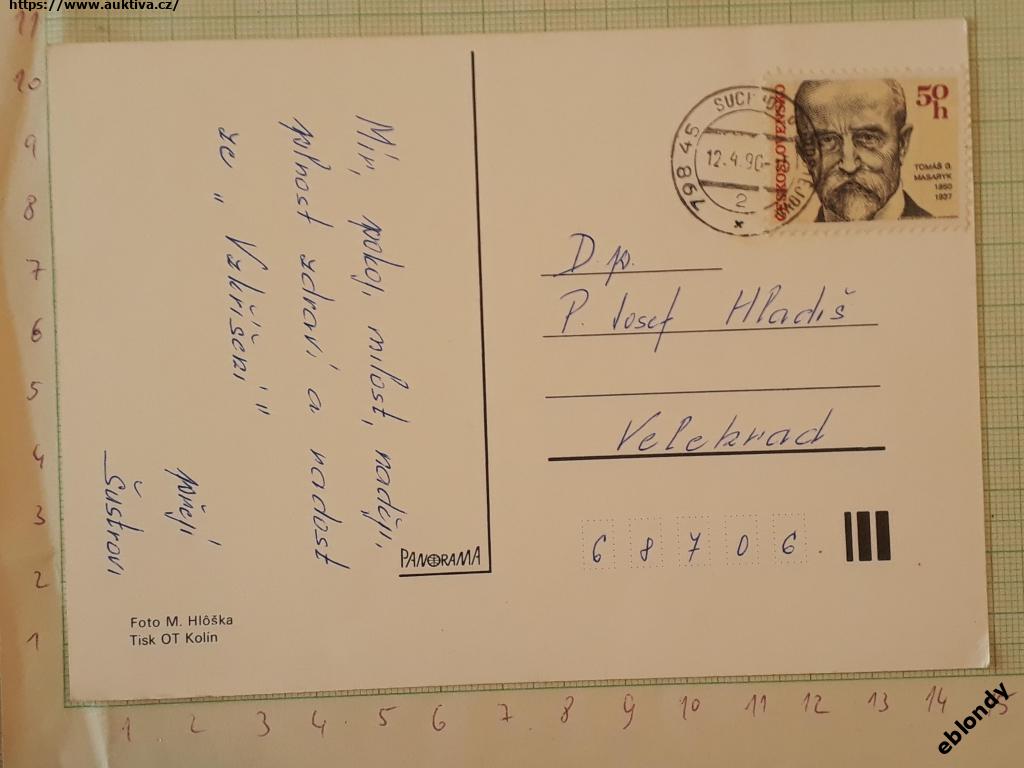 https://www.auktiva.cz/
Mír, pokoj, milost, naději,
plnost zdraví a radost
ze „Vzkříšení"
přejí
Šustrovi
PANORAMA
Foto M. Hlôška
Tisk OT Kolín
798 45
12.4.90
2
ČESKOSLOVENSKO
50
h
TOMÁŠ G.
MASARYK
1850
1937
D.p.
P. Josef Hladiš
Velehrad
6 8 7 0 6
11
10
9
8
7
6
5
4
3
2
1
1 2 3 4 5 6 7 8 9 10 11 12 13 14 15
eblondy